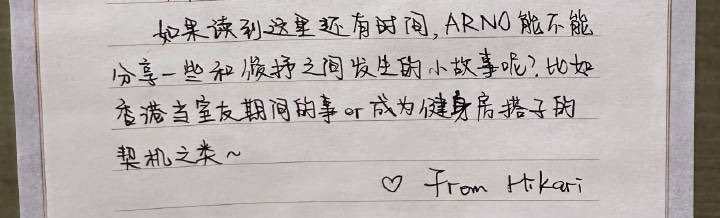 如果读到这里还有时间，ARNO能不能
分享一些和俊抒之间发生的小故事呢？比如
香港当室友期间的事or成为健身房搭子的
契机之类～
♡ From Hikari